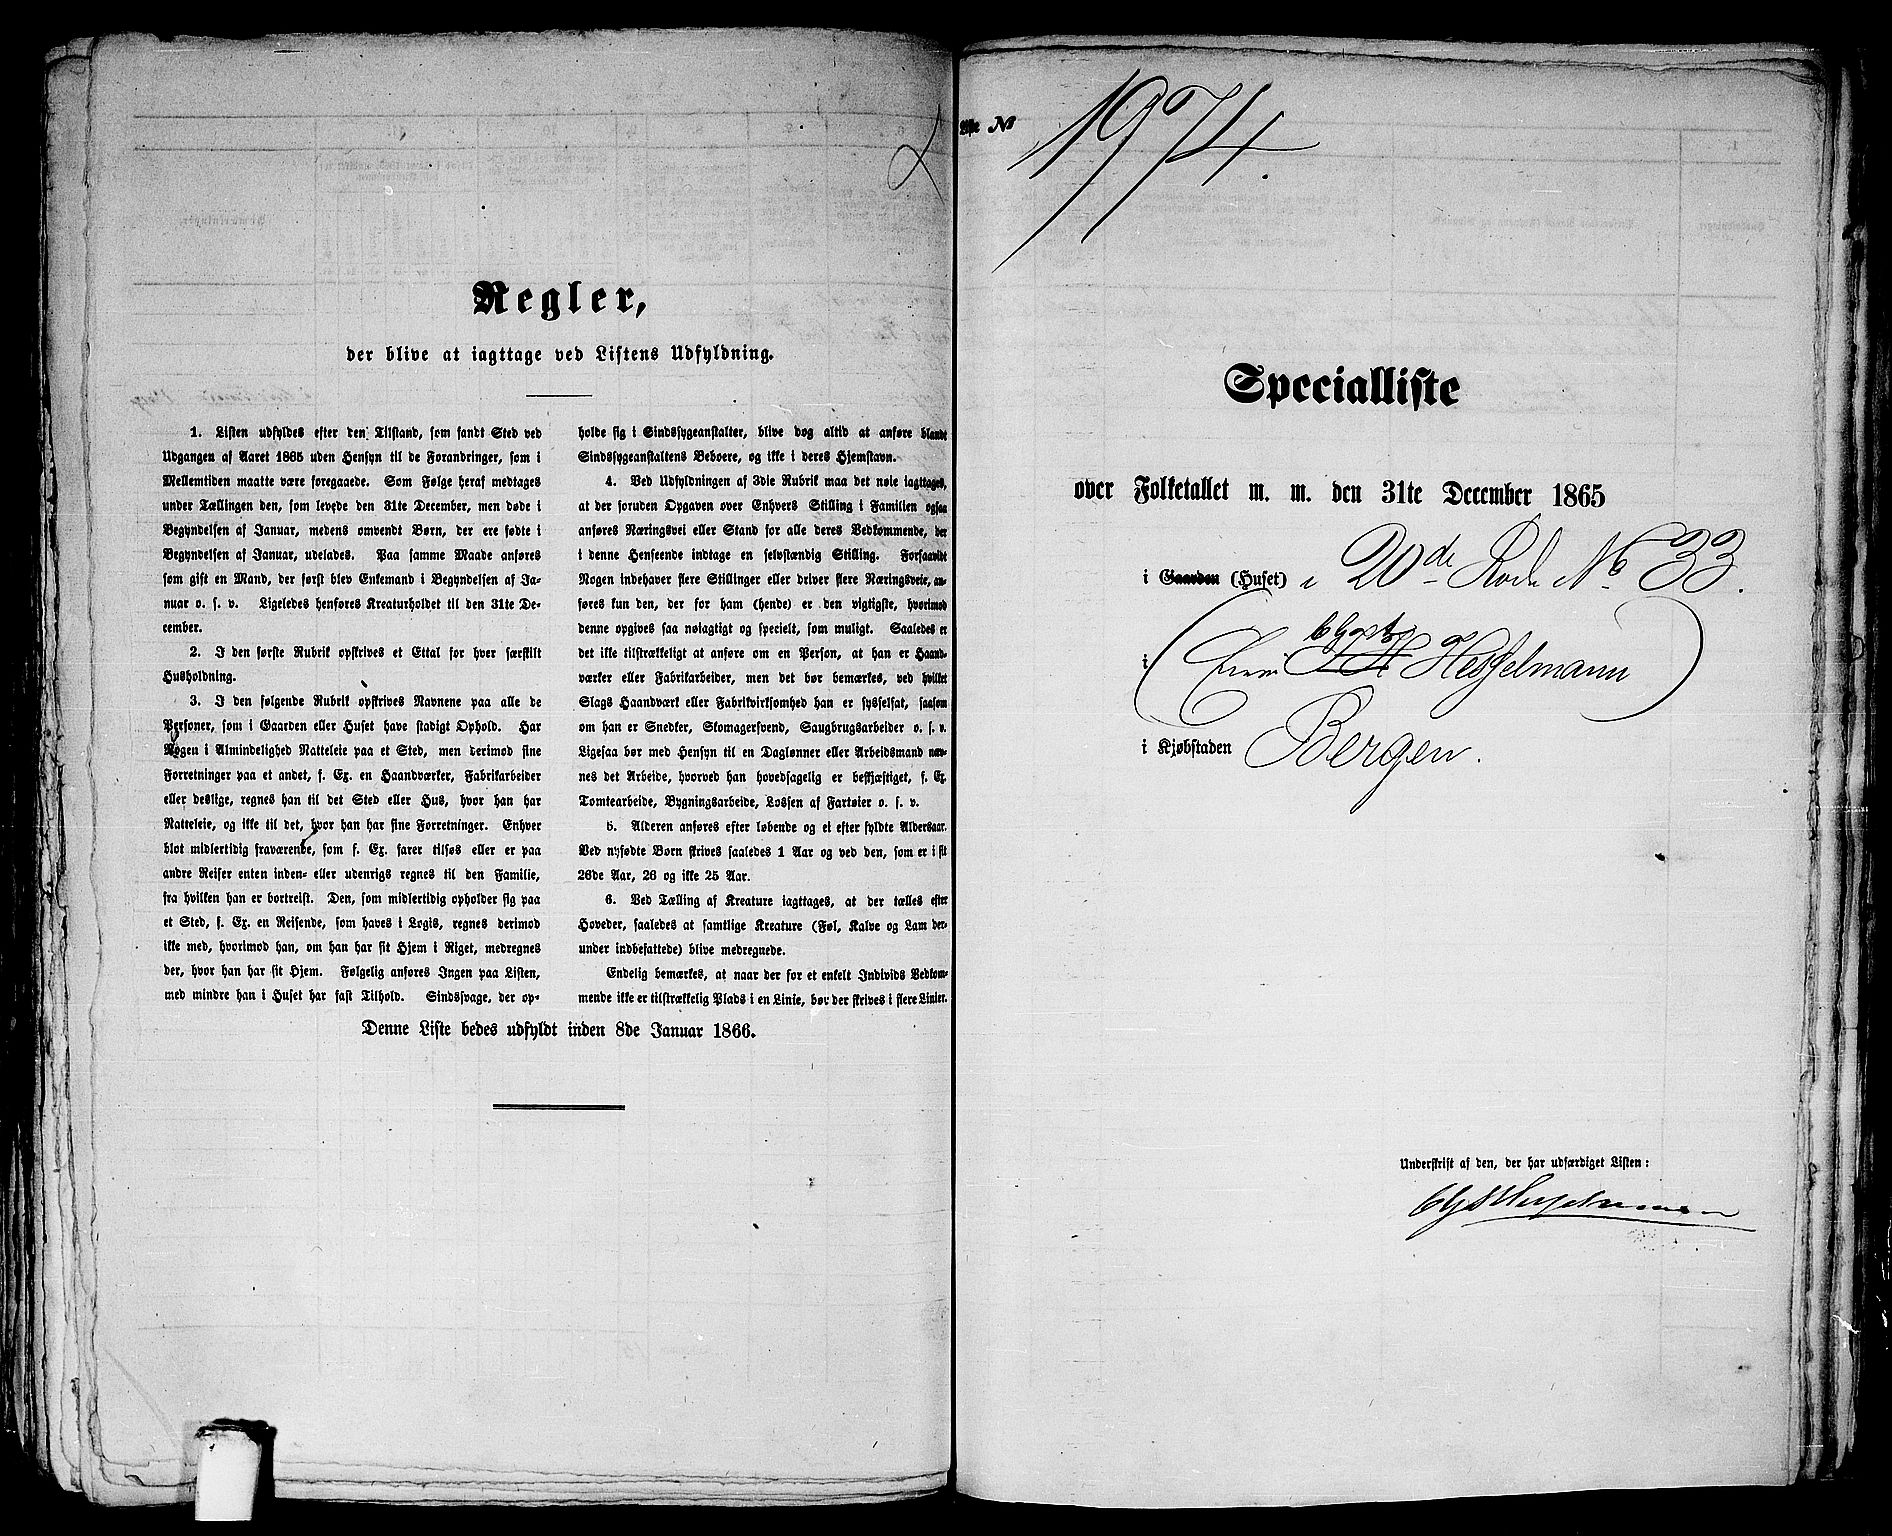 Regler,
der blive at iagttage ved Listens Udfyldning.
1. Listen udfyldes efter den Tilstand, som fandt Sted ved
Udgangen af Aaret 1865 uden Hensyn til de Forandringer, som i
Mellemtiden maatte være foregaaede. Som Følge heraf medtages
under Tællingen den, som levede den 31te December, men døde i
Begyndelsen af Januar, medens omvendt Børn, der ere fødte i
Begyndelsen af Januar, udelades. Paa samme Maade anføres
som gift en Mand, der først blev Enkemand i Begyndelsen af Ja-
nuar o. s. v. Ligeledes henføres Kreaturholdet til den 31te De-
cember.
2. I den første Rubrik opskrives et Ettal for hver særskilt
Husholdning.
3. I den følgende Rubrik opskrives Navnene paa alle de
Personer, som i Gaarden eller Huset have stadigt Ophold. Har
Nogen i Almindelighed Natteleie paa et Sted, men derimod sine
Forretninger paa et andet, f. Ex. en Haandværker, Fabrikarbeider
eller deslige, regnes han til det Sted eller Hus, hvor han har
Natteleie, og ikke til det, hvor han har sine Forretninger. Enhver
blot midlertidig fraværende, som f. Ex. farer tilsøs eller er paa
andre Reiser enten inden- eller udenrigs regnes til den Familie,
fra hvilken han er bortreist. Den, som midlertidig opholder sig paa
et Sted, f. Ex. en Reisende, som haves i Logis, regnes derimod
ikke med, hvorimod han, om han har sit Hjem i Riget, medregnes
der, hvor han har sit Hjem. Følgelig anføres Ingen paa Listen,
med mindre han i Huset har fast Tilhold. Sindssvage, der op-
holde sig i Sindssygeanstalter, blive dog altid at anføre blandt
Sindssygeanstaltens Beboere, og ikke i deres Hjemstavn.
4. Ved Udfyldningen af 3die Rubrik maa det nøie iagttages,
at der foruden Opgaven over Enhvers Stilling i Familien ogsaa
anføres Næringsvei eller Stand for alle deres Vedkommende, der
i denne Henseende indtage en selvstændig Stilling. Forsaavidt
Nogen indehaver flere Stillinger eller driver flere Næringsveie, an-
føres kun den, der for ham (hende) er den vigtigste, hvorimod
denne opgives saa nøiagtigt og specielt, som muligt. Saaledes er
det ikke tilstrækkeligt at anføre om en Person, at han er Haand-
værker eller Fabrikarbeider, men det bør bemærkes, ved hvilket
Slags Haandværk eller Fabrikvirksomhed han er sysselsat, saasom
om han er Snedker, Skomagersvend, Saugbrugsarbeider o. s. v.
Ligesaa bør med Hensyn til en Daglønner eller Arbeidsmand næv-
nes det Arbeide, hvorved han hovedsagelig er beskjæftiget, f. Ex.
Tomtearbeide, Bygningsarbeide, Lossen af Fartøier o. s. v.
5. Alderen anføres efter løbende og ei efter fyldte Aldersaar.
Ved nyfødte Børn skrives saaledes 1 Aar og ved den, som er i sit
26de Aar, 26 og ikke 25 Aar.
6. Ved Tælling af Kreature iagttages, at der tælles efter
Hoveder, saaledes at samtlige Kreature (Føl, Kalve og Lam der-
under indbefattede) blive medregnede.
Endelig bemærkes, at naar der for et enkelt Individs Vedkom-
mende ikke er tilstrækkelig Plads i en Linie, bør der skrives i flere Linier.
Denne Liste bedes udfyldt inden 8de Januar 1866.
№ 1974.
Specialliste
over Folketallet m. m. den 31te December 1865
i Gaarden (Huset) i 20de Rode No 33.
i ( Hesselmann )
i Kjøbstaden Bergen.
Underskrift af den, der har udfærdiget Listen:
Hesselmann